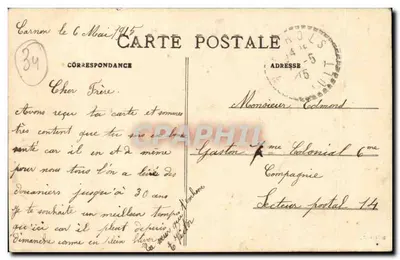 Carnon le 6 Mai 1915
CARTE POSTALE
CORRESPONDANCE
ADRESSE
34
Cher Frère
Avons reçu ta carte et sommes
très content que tu en bonne
santé car il en et de même
pour nous tous l'on a levé des
douaniers jusqu'à 30 ans
Je te souhaite un meilleur temps
qu'ici car il pleut depuis
Dimanche comme en plein hiver
Monsieur Edmond
Gaston 7me Colonial 6me
Compagnie
Secteur postal 14